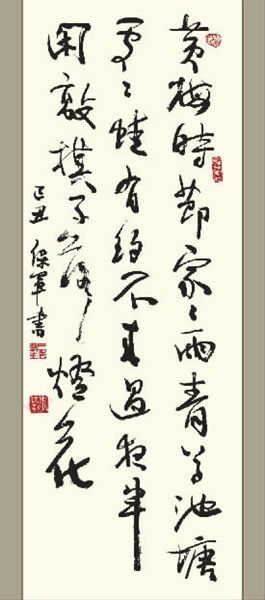 黄梅時節家〻雨青草池塘
處〻蛙有約不来過夜半
閑敲棋子落燈花
己丑 保軍書